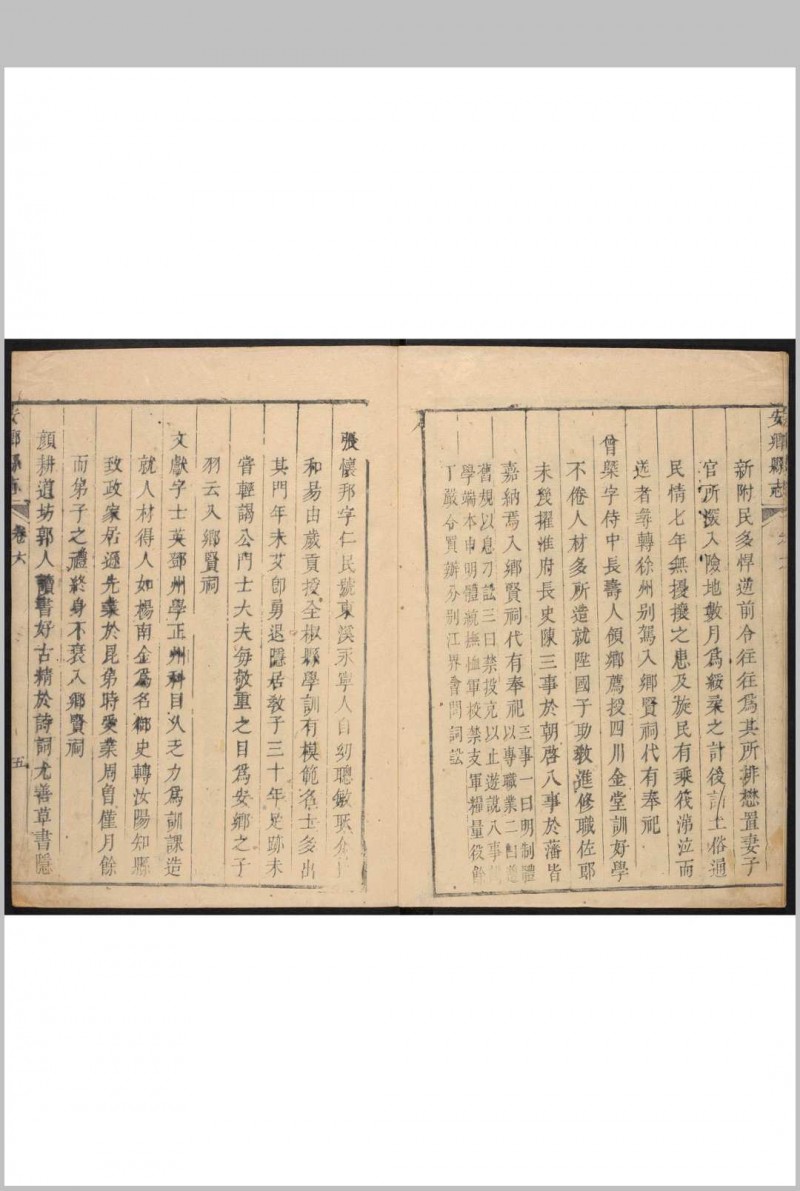 安鄉縣志
新附民多悍逆前令往往爲其所排懋置妻子
官所深入險地數月爲綏柔之計後訓土俗通
民情七年無擾擾之患及旋民有乘筏涕泣而
送者尋轉徐州别駕入鄉賢祠代有奉祀
曾㮣字侍中長壽人領鄉薦授四川金堂訓好學
不倦人材多所造就陞國子助教進修職佐郎
未幾擢淮府長史陳三事於朝啓八事於藩皆
嘉納焉入鄉賢祠代有奉祀三事一曰明制體
以專職業二曰
舊規以息刁訟三曰禁投充以止遊說八事
學端本申明體統撫恤軍校禁支軍糧量役餘
丁嚴令買辦分别江界會問詞訟
張懷邦字仁民號東溪永寧人自幼聰敏
和易由歲貢授全椒縣學訓有模範名士多出
其門年未艾卽勇退隱居教子三十年足跡未
嘗輕謁公門士大夫每敬重之目爲安鄉之子
羽云入鄉賢祠
文獻字士英鄧州學正州科目久乏力爲訓課造
就人材得人如楊南金爲名御史轉汝陽知縣
致政家居遜先業於昆弟時受業周曾僅月餘
而弟子之禮終身不衰入鄉賢祠
顔耕道坊郭人讀書好古精於詩詞尤善草書隱
安鄉縣志
卷六
五